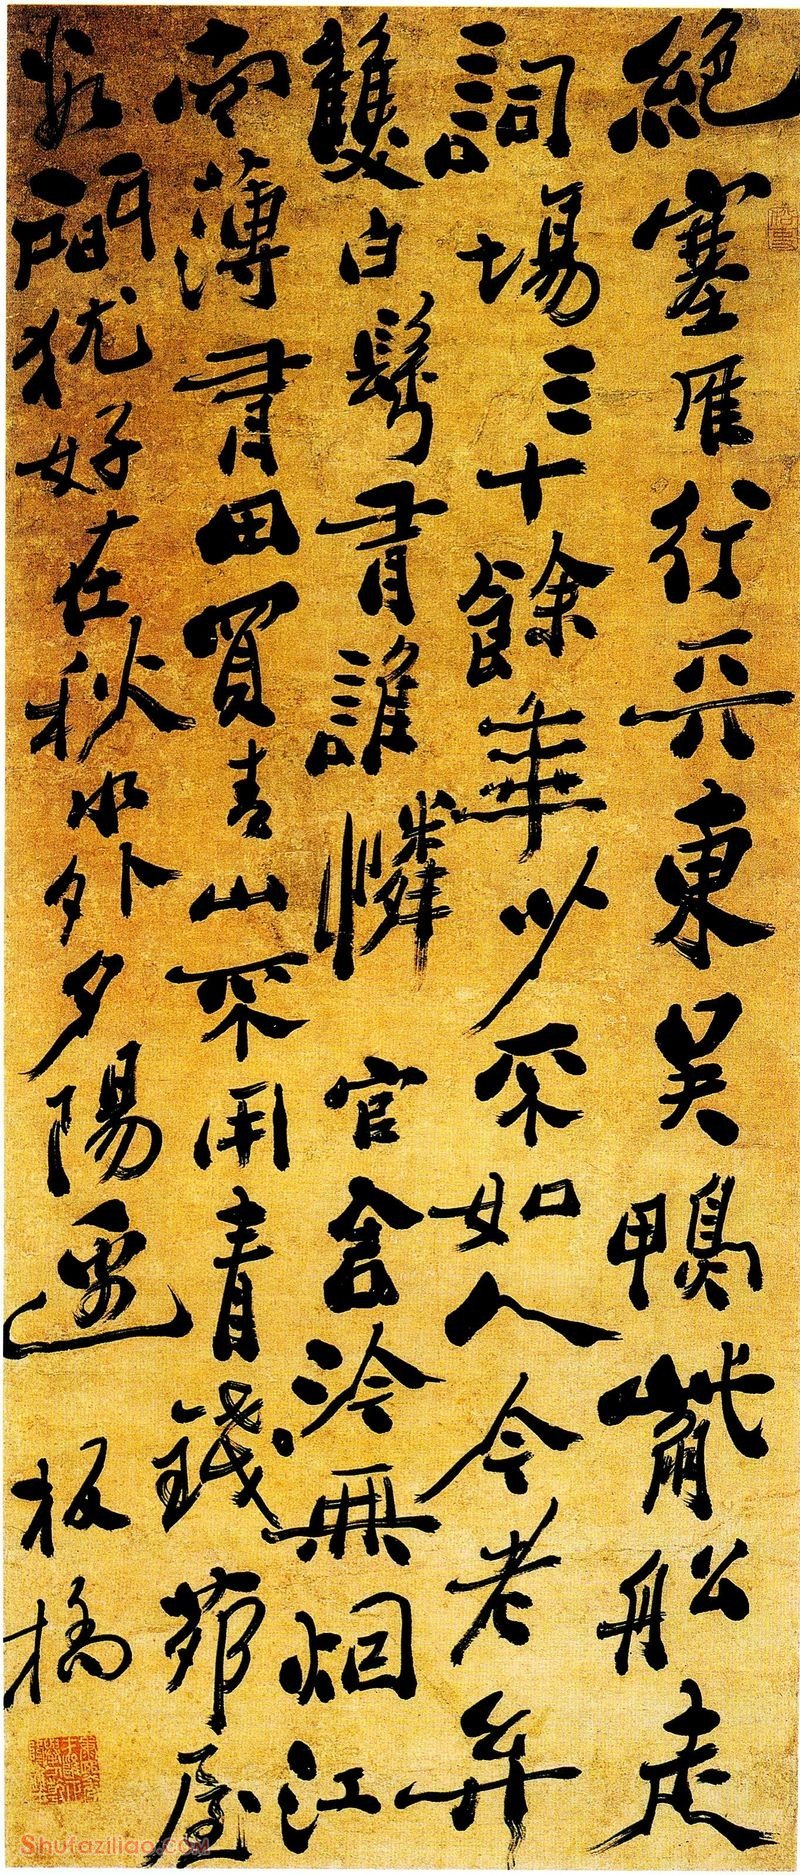 絕塞雁行天東吳鴨觜船走
詞場三十餘年少不如人今老矣
雙白鬢有誰憐 官舍冷無烟江
南薄有田買青山不用青錢茆屋
數間猶好在秋水外夕陽邊 板橋
Shufaziliao.com